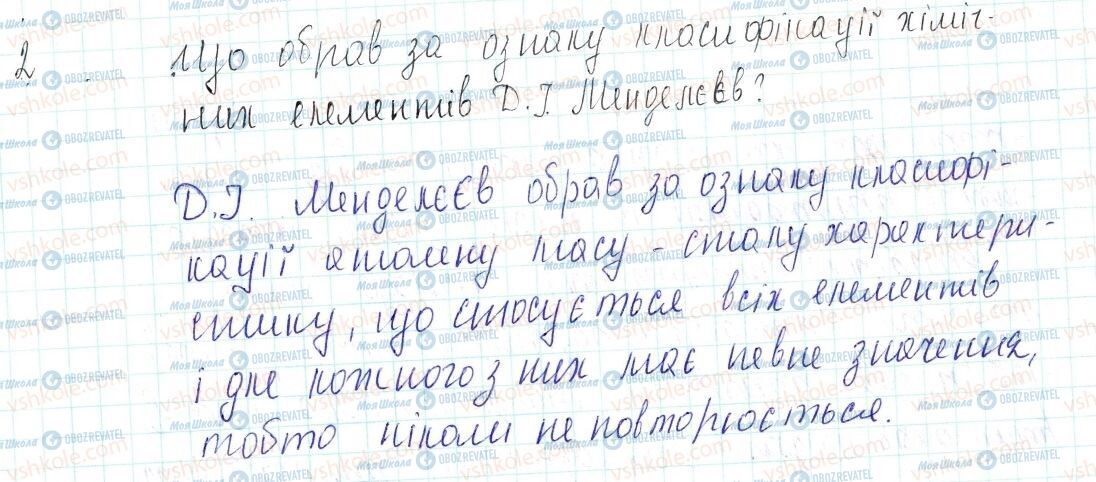 2 Що обрав за ознаку класифікації хіміч-
них елементів Д.І. Менделєєв?
Д.І. Менделєєв обрав за ознаку класифі-
кації атомну масу - сталу характери-
стику, що стосується всіх елементів
і для кожного з них має певне значення,
тобто ніколи не повторюється.